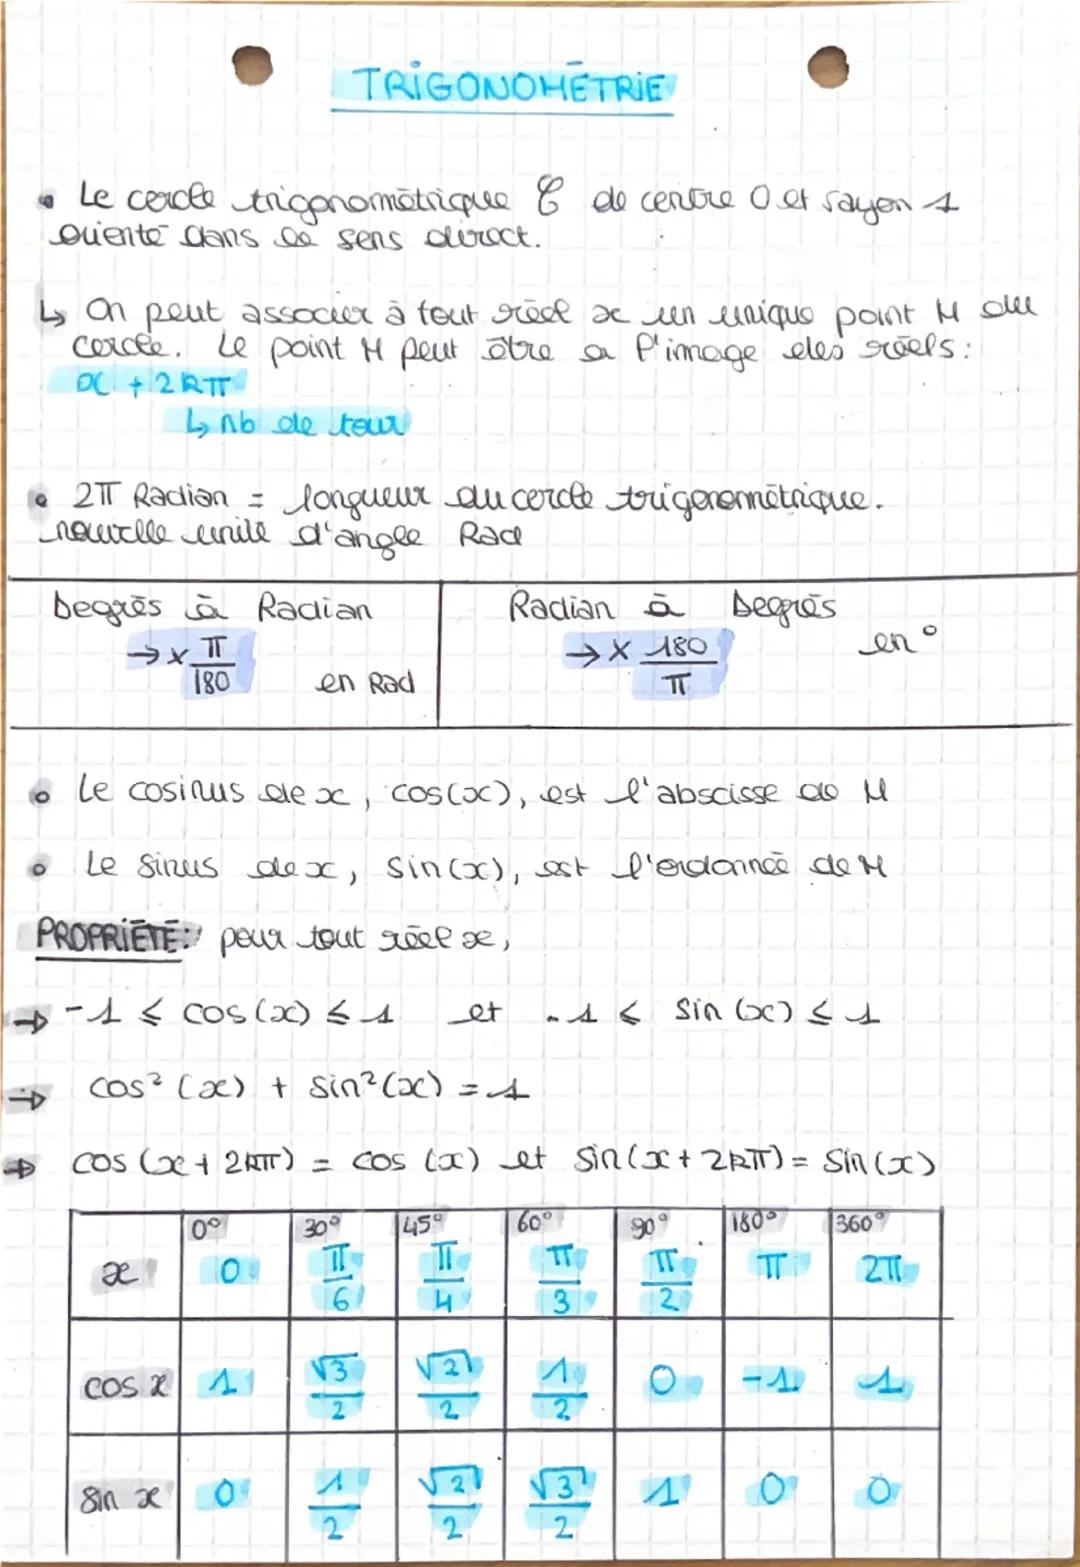 TRIGONOMÉTRIE
• Le cercle trigonométrique C de centre O et rayon 1
orienté dans le sens direct.
↳ On peut associer à tout réel x un unique point M du
cercle. Le point M peut être a l'image des réels :
x + 2kπ
↳ nb de tour
• 2π Radian = longueur du cercle trigonométrique.
nouvelle unité d'angle Rad
Degrés à Radian
→ × π/180 en Rad
Radian à Degrés
→ × 180/π en °
• Le cosinus de x, cos(x), est l'abscisse de M
• Le sinus de x, sin(x), est l'ordonnée de M
PROPRIÉTÉ: pour tout réel x,
→ -1 ≤ cos(x) ≤ 1 et -1 ≤ sin(x) ≤ 1
→ cos²(x) + sin²(x) = 1
→ cos(x+2kπ) = cos(x) et sin(x+2kπ) = sin(x)
0° 30° 45° 60° 90° 180° 360°
x 0 π/6 π/4 π/3 π/2 π 2π
cos x 1 √3/2 √2/2 1/2 0 -1 1
sin x 0 1/2 √2/2 √3/2 1 0 0